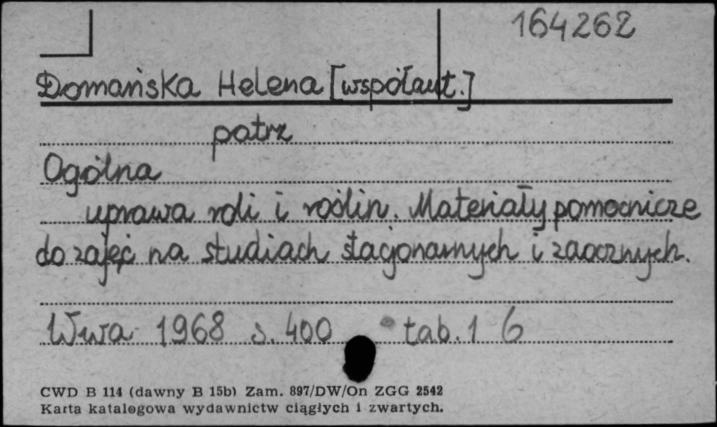 164262
Domańska Helena [współaut.]
patrz
Ogólna
uprawa roli i roślin. Materiały pomocnicze
do zajęć na studiach stacjonarnych i zaocznych.
Wwa 1968 s. 400 tab. 1 6
CWD B 114 (dawny B 15b) Zam. 897/DW/On ZGG 2542
Karta katalogowa wydawnictw ciągłych i zwartych.